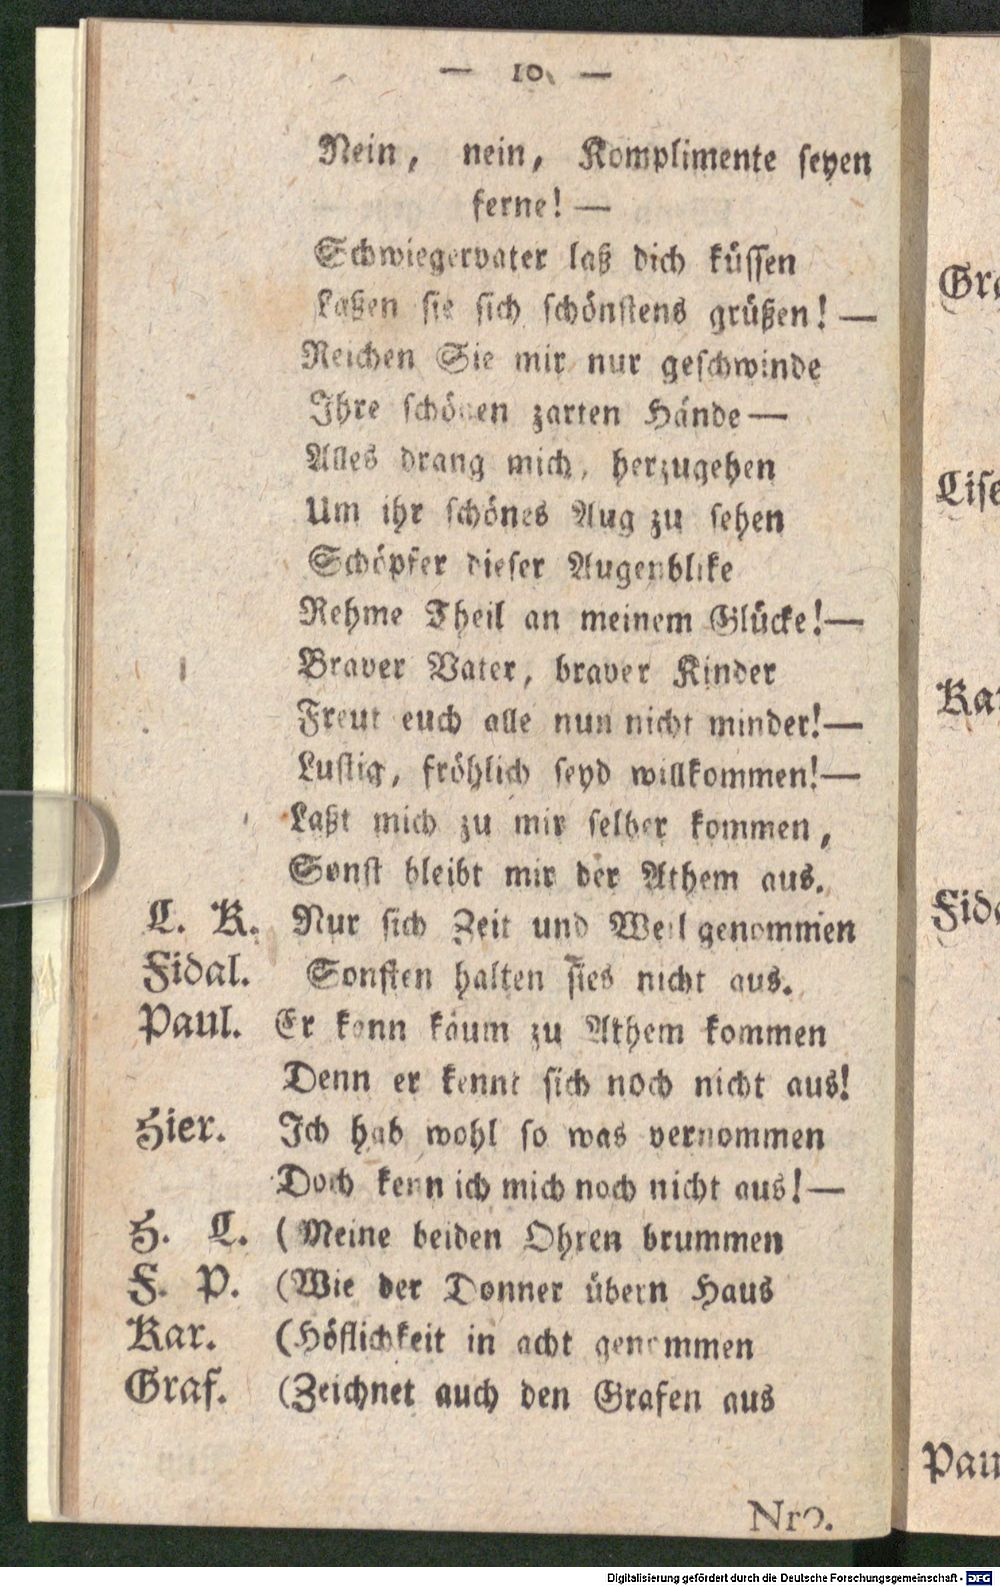 — 10. —
Nein, nein, Komplimente seyen
ferne! —
Schwiegervater laß dich küssen
Laßen sie sich schönstens grüßen! —
Reichen Sie mir nur geschwinde
Ihre schönen zarten Hände —
Alles drang mich, herzugehen
Um ihr schönes Aug zu sehen
Schöpfer dieser Augenblike
Nehme Theil an meinem Glücke! —
Braver Vater, braver Kinder
Freut euch alle nun nicht minder! —
Lustig, fröhlich seyd willkommen! —
Laßt mich zu mir selber kommen,
Sonst bleibt mir der Athem aus.
L. K. Nur sich Zeit und Weil genommen
Fidal. Sonsten halten sies nicht aus.
Paul. Er kann kaum zu Athem kommen
Denn er kennt sich noch nicht aus!
Hier. Ich hab wohl so was vernommen
Doch kenn ich mich noch nicht aus! —
H. L. (Meine beiden Ohren brummen
F. P. (Wie der Donner übern Haus
Kar. (Höflichkeit in acht genommen
Graf. (Zeichnet auch den Grafen aus
Nro.
Gra
Lise
Kar
Fida
Pau
Digitalisierung gefördert durch die Deutsche Forschungsgemeinschaft - DFG